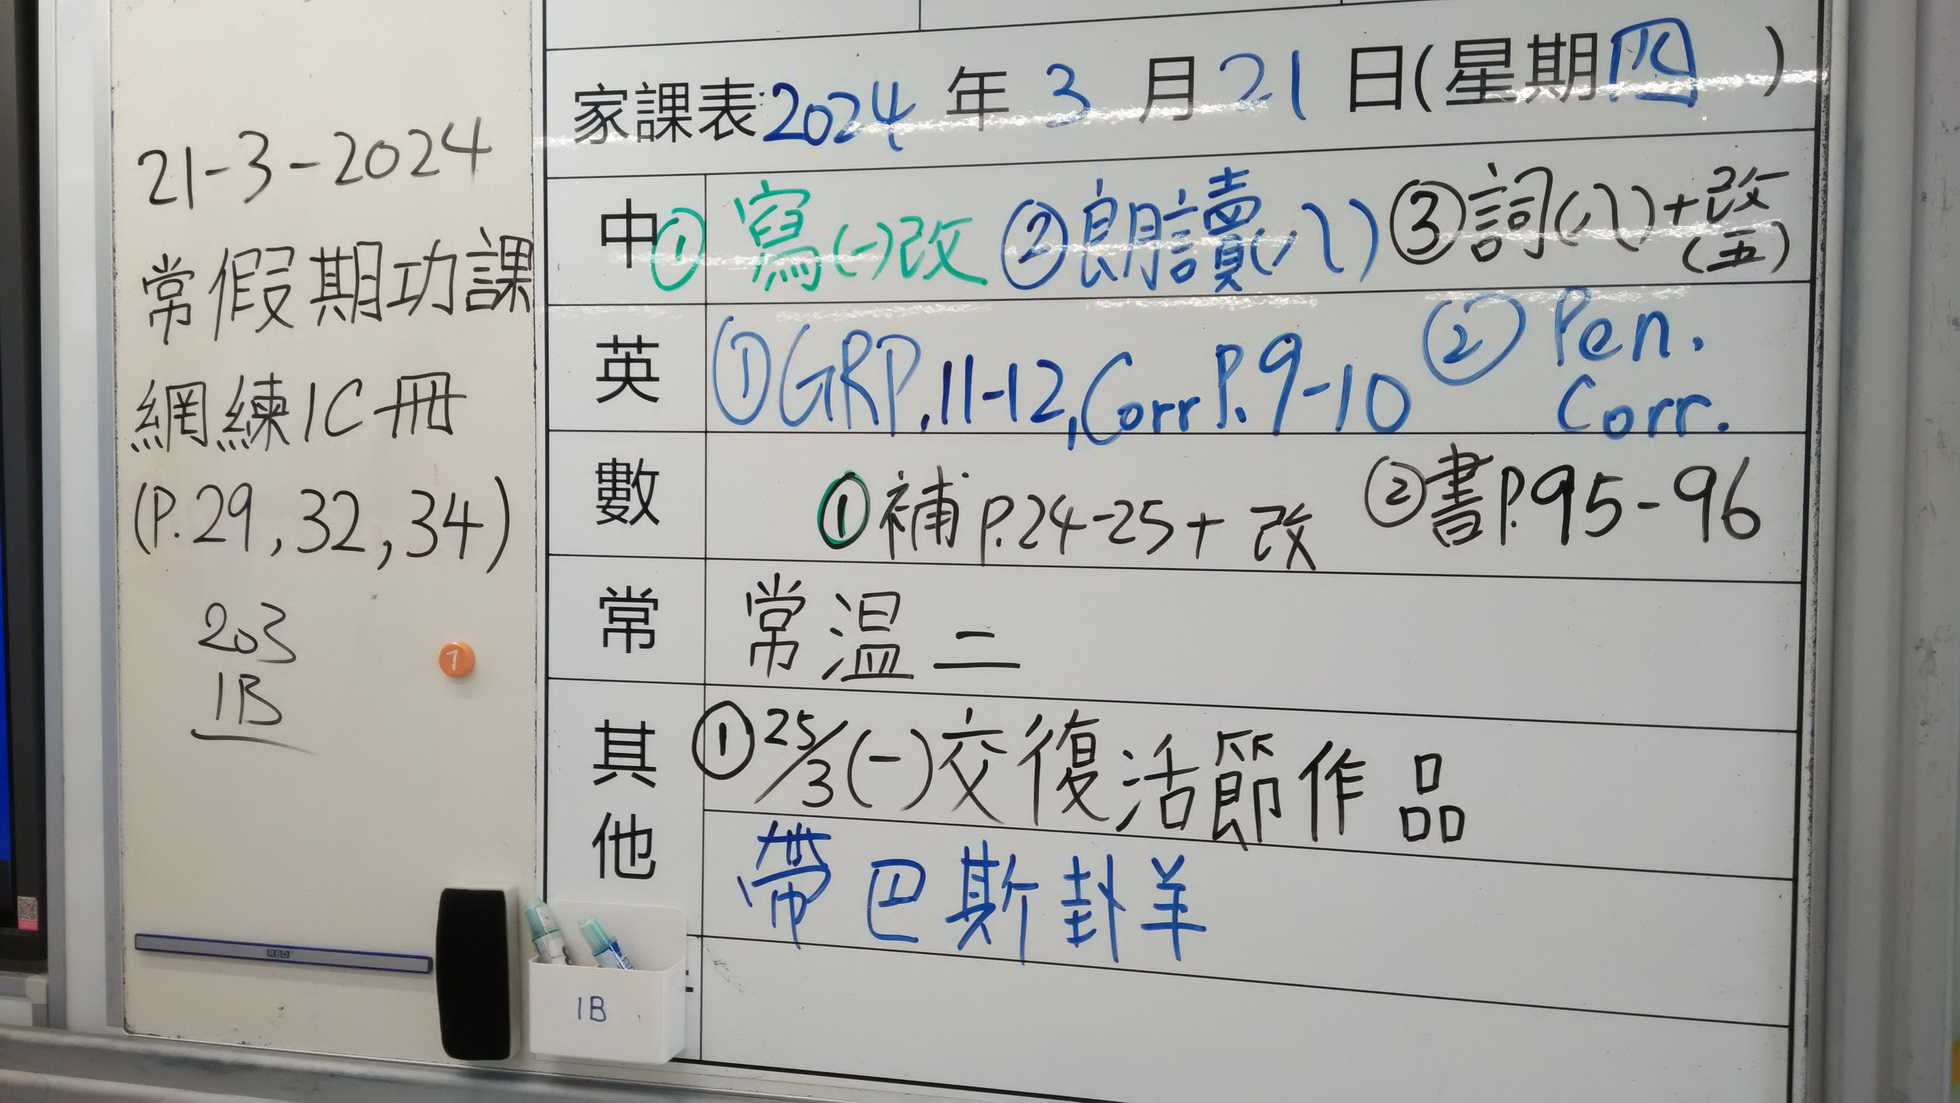 21-3-2024
常假期功課
網練1C冊
(P.29,32,34)
203
1B
7
RBD
1B
家課表:2024 年 3 月 21 日(星期四 )
中 ①寫(一)改 ②朗讀(八) ③詞(八)+改(五)
英 ①GRP.11-12,Corr P.9-10 ② Pen. Corr.
數 ①補 P.24-25+ 改 ②書P.95-96
常 常溫二
其他 ①25/3(一)交復活節作品
帶巴斯卦羊